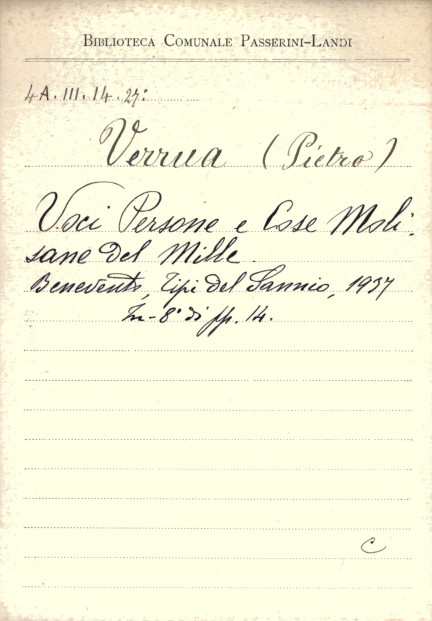 BIBLIOTECA COMUNALE PASSERINI-LANDI
4A.III.14.27:
Verrua (Pietro)
Voci Persone e Cose Moli-
sane del Mille.
Benevento, Tipi del Sannio, 1937
In-8° di pp. 14.
C